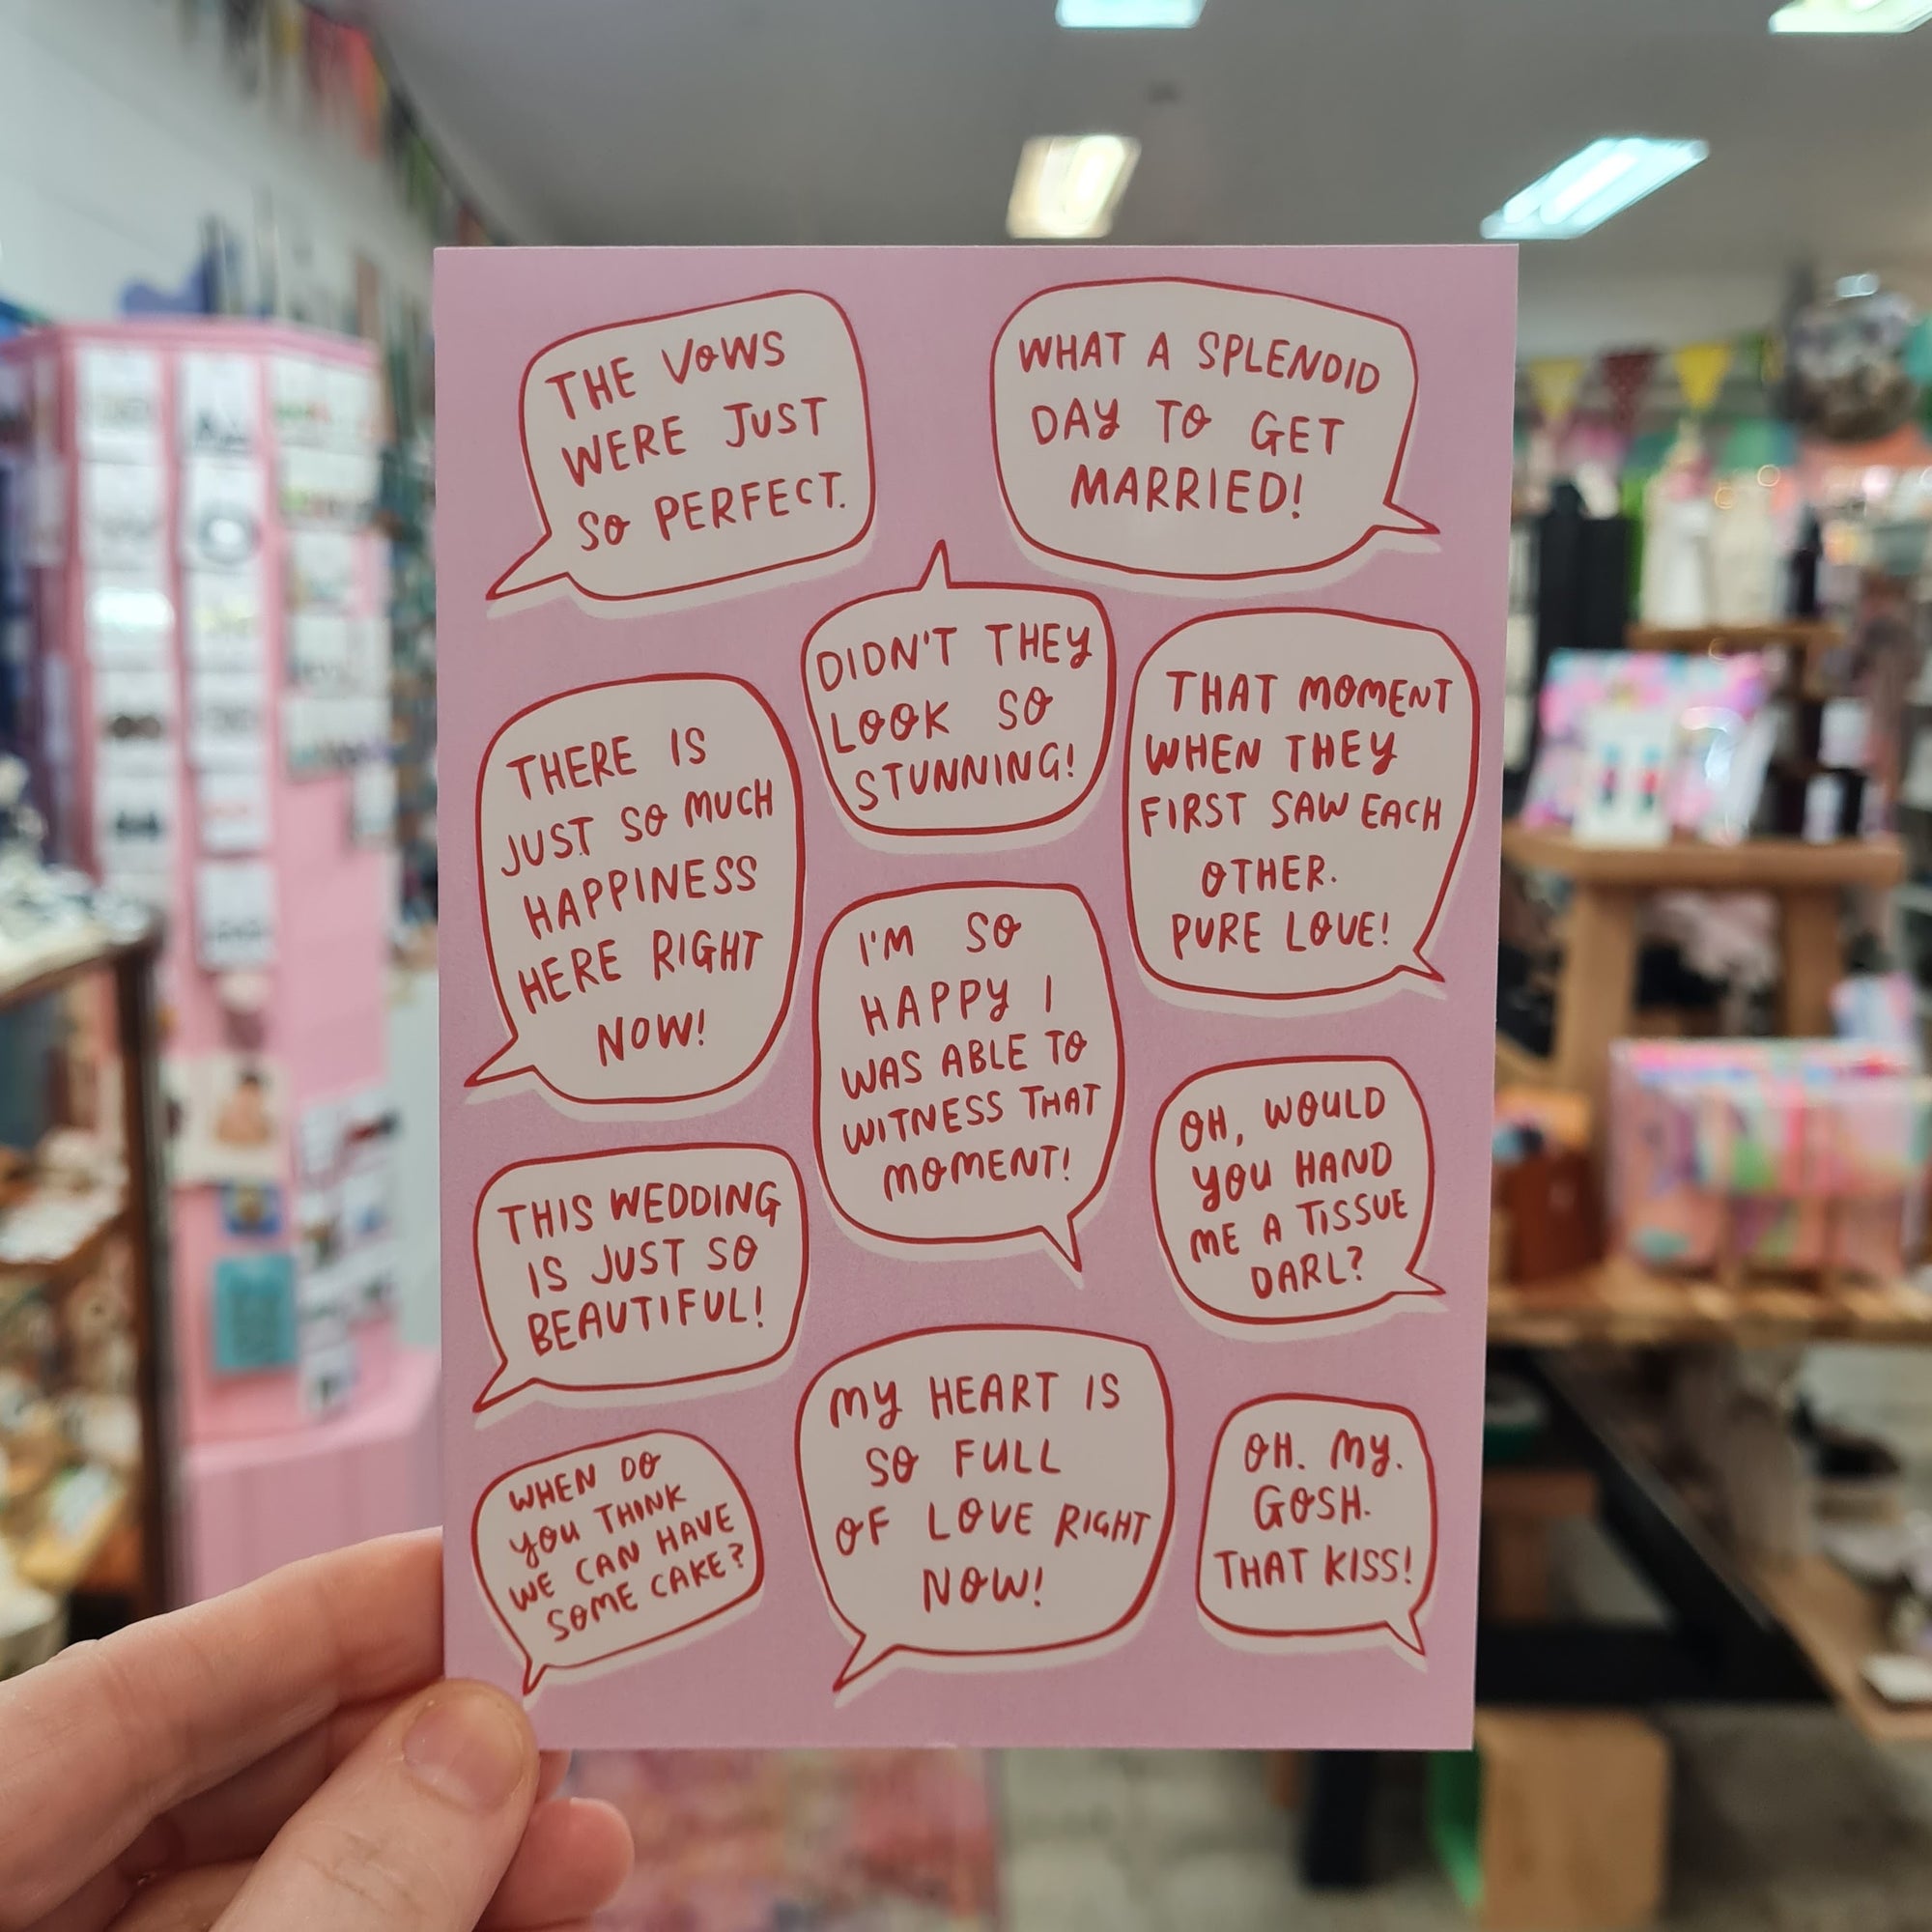 THE VOWS
WERE JUST
SO PERFECT.
WHAT A SPLENDID
DAY TO GET
MARRIED!
DIDN'T THEY
LOOK SO
STUNNING!
THERE IS
JUST SO MUCH
HAPPINESS
HERE RIGHT
NOW!
THAT MOMENT
WHEN THEY
FIRST SAW EACH
OTHER.
PURE LOVE!
I'M SO
HAPPY I
WAS ABLE TO
WITNESS THAT
MOMENT!
OH, WOULD
YOU HAND
ME A TISSUE
DARL?
THIS WEDDING
IS JUST SO
BEAUTIFUL!
MY HEART IS
SO FULL
OF LOVE RIGHT
NOW!
OH. MY.
GOSH.
THAT KISS!
WHEN DO
YOU THINK
WE CAN HAVE
SOME CAKE?